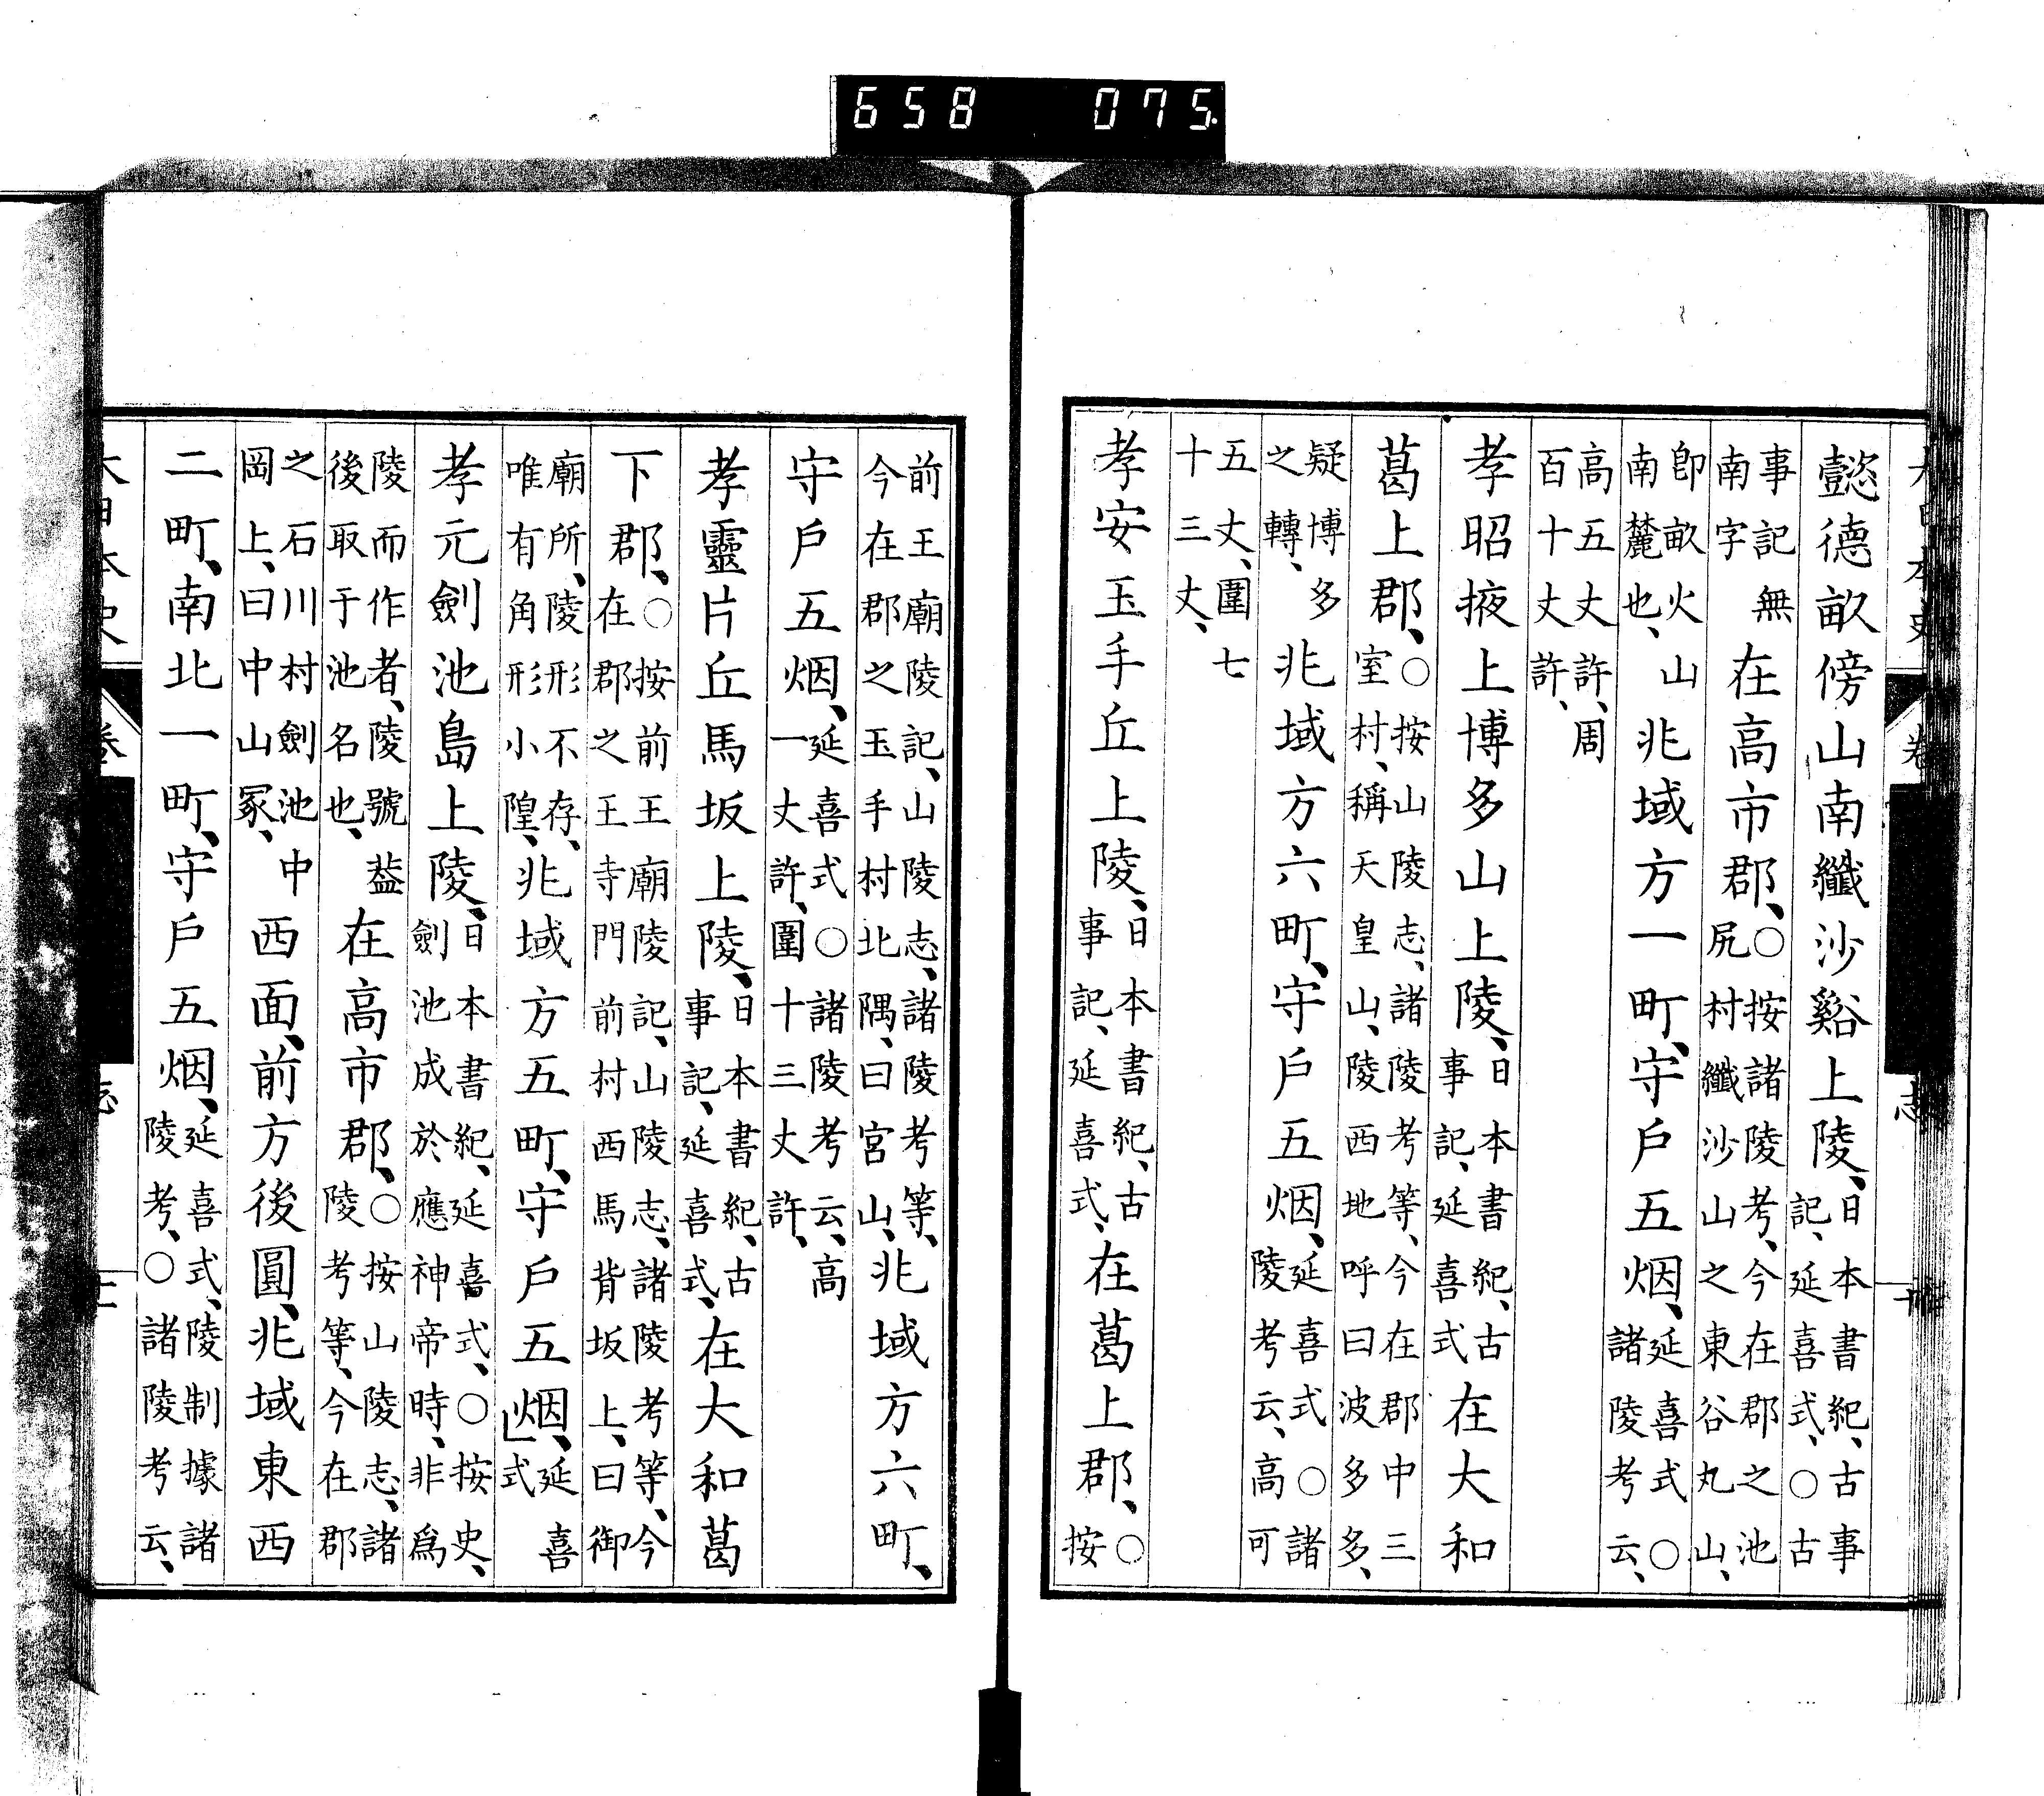 658 075
懿德畝傍山南纖沙谿上陵、日本書紀、古事記、延喜式、○古
事記無南字在高市郡、○按諸陵考、今在郡之池尻村纖沙山之東谷丸山、
卽畝火山南麓也、兆域方一町、守戶五烟、延喜式○諸陵考云、
高五丈許、周百十丈許、
孝昭掖上博多山上陵、日本書紀、古事記、延喜式在大和
葛上郡、○按山陵志、諸陵考等、今在郡中三室村、稱天皇山、陵西地呼曰波多多、
疑博多之轉、兆域方六町、守戶五烟、延喜式○諸陵考云、高可
五丈、圍七十三丈、
孝安玉手丘上陵、日本書紀、古事記、延喜式、在葛上郡、○按
前王廟陵記、山陵志、諸陵考等、今在郡之玉手村北隅、曰宮山、兆域方六町、
守戶五烟、延喜式○諸陵考云、高一丈許、圍十三丈許、
孝靈片丘馬坂上陵、日本書紀、古事記、延喜式、在大和葛
下郡、○按前王廟陵記、山陵志、諸陵考等、今在郡之王寺門前村西馬背坂上、曰御
廟所、陵形不存、唯有角形小隍、兆域方五町、守戶五烟、延喜式
孝元劍池島上陵、日本書紀、延喜式、○按史、劍池成於應神帝時、非爲
陵而作者、陵號葢後取于池名也、在高市郡、○按山陵志、諸陵考等、今在郡
之石川村劍池中岡上、曰中山冢、西面、前方後圓、兆域東西
二町、南北一町、守戶五烟、延喜式、陵制據諸陵考、○諸陵考云、